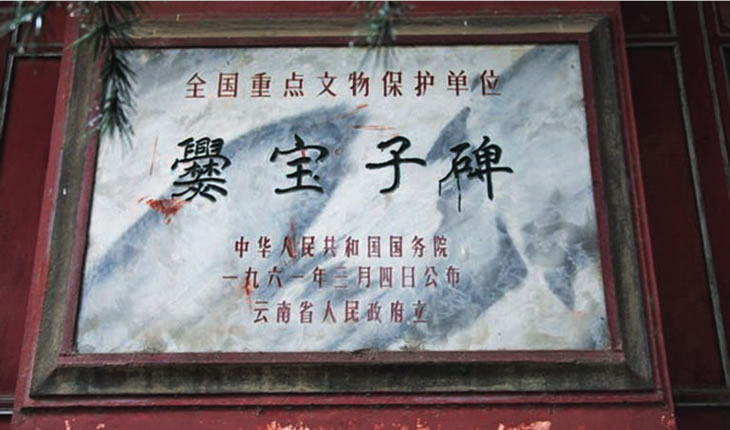 全国重点文物保护单位
爨宝子碑
中华人民共和国国务院
一九六一年三月四日公布
云南省人民政府立